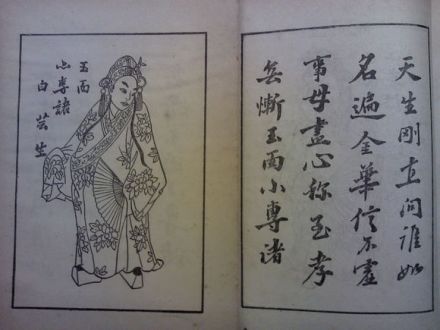 天生剛直问誰如
名遍金華信不虛
事母盡心称至孝
無慚玉面小專諸
玉面
小專諸
白芸生